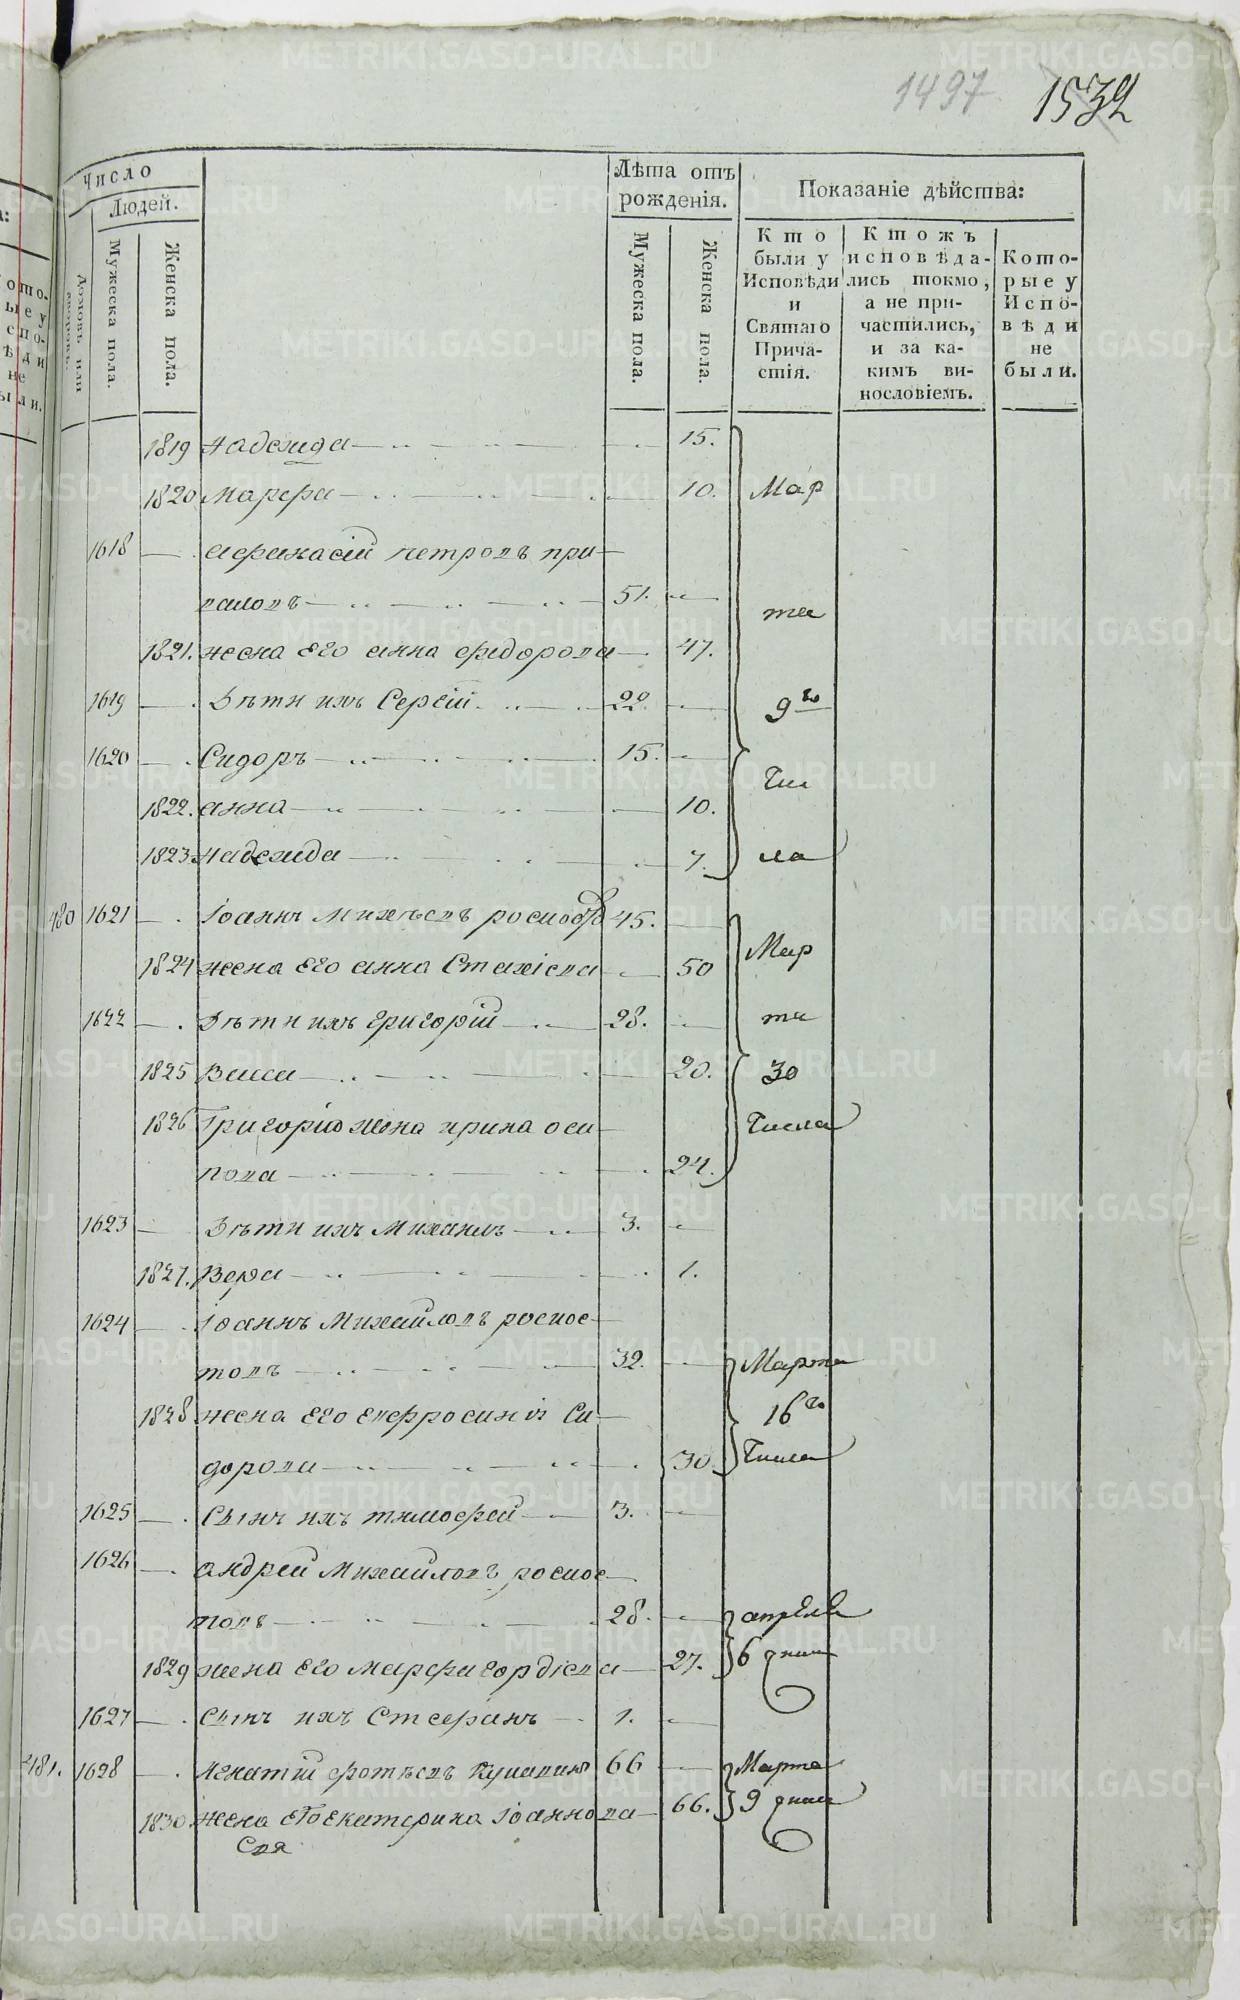 1497 1532
Число
Людей.
Мужеска пола.
Женска пола.
Лѣта отъ рожденія.
Мужеска пола.
Женска пола.
Показаніе дѣйства:
Кто были у Исповѣди и Святаго Причастія.
Ктожъ исповѣдались токмо, а не причастились, и за какимъ винословіемъ.
Которые у Исповѣди не были.
1819 Надежда 15.
1820 Марфа 10. Мар
1618 Афанасій Петровъ При-
валовъ 51. та
1821. жена Его анна федорова 47.
1619 Дѣти ихъ Сергій 22. 9го
1620 Сидоръ 15. Чи
1822. анна 10.
1823 Надежда 7. сла
480 1621 Іоаннъ Михѣевъ 45. Мар
1824 жена Его анна Стахіева 50
1622 Дѣти ихъ Григорій 28. та
1825 Васса 20. 30
1826 Григорію жена ирина оси- Числа
пова 24.
1623 Дѣти ихъ Михаилъ 3.
1827. Вера 1.
1624 Іоаннъ Михайловъ роспос-
товъ 32. Марта
1828 жена Его Евфросинія Си- 16го
дорова 30. Числа
1625 Сынъ ихъ тимофей 3.
1626 андрей Михайловъ роспос-
товъ 28. апреля
1829 жена Его Марфа гордіева 27. 6 дня
1627 Сынъ ихъ Стефанъ 1.
481. 1628 Игнатій фотѣевъ 66 Марта
1830 жена Его Екатерина Іоаннова 66. 9 дня
METRIKI.GASO-URAL.RU